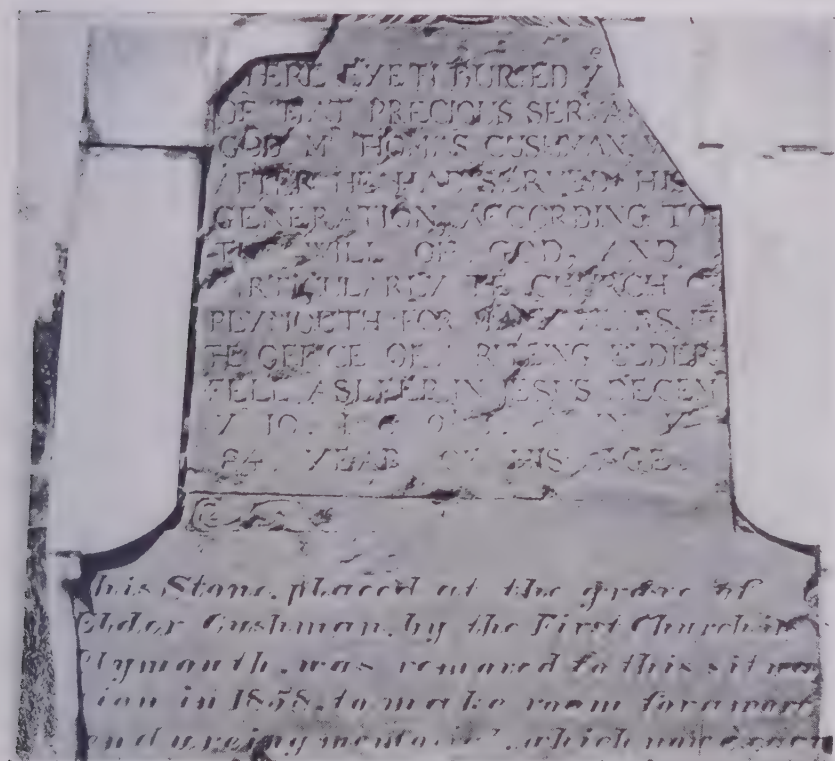 HERE LYETH BURIED Y
OF THAT PRECIOUS SERVA
GOD Mr THOMAS CUSHMAN, W
AFTER HE HAD SERVED HIS
GENERATION ACCORDING TO
THE WILL OF GOD, AND
ARTICULARLY THE CHURCH O
PLYMOUTH FOR MANY YEARS, IN
THE OFFICE OF A RULING ELDER
FELL ASLEEP IN JESUS DECEM
Y 10. IN Y
84. YEAR OF HIS AGE.
his Stone, placed at the grave of
elder Cushman, by the First Church in
Plymouth, was removed to this situa
tion in 1858, to make room for a more
enduring which